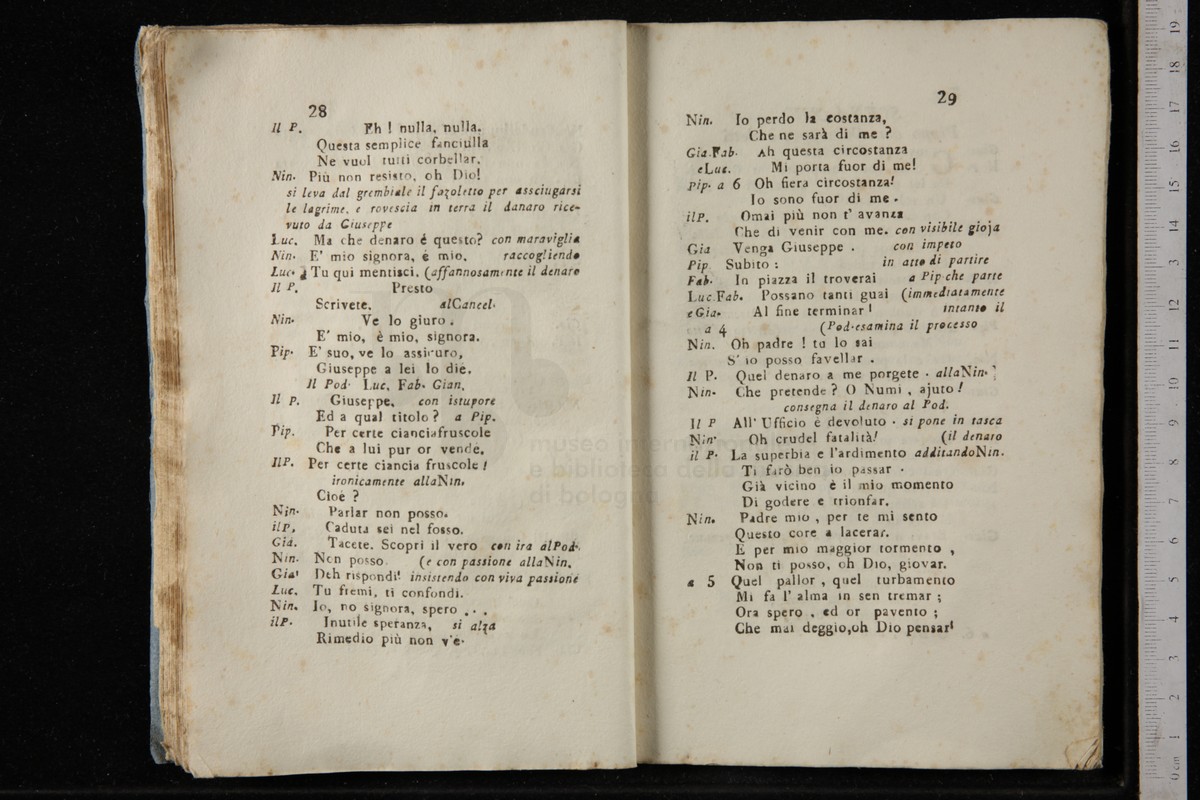 28
Il P. Eh ! nulla, nulla.
Questa semplice fanciulla
Ne vuol tutti corbellar.
Nin. Più non resisto, oh Dio!
si leva dal grembiale il fazoletto per asciugarsi
le lagrime, e rovescia in terra il danaro rice-
vuto da Giuseppe
Luc. Ma che denaro é questo? con maraviglia
Nin. E' mio signora, è mio. raccogliendo
Luc. Tu qui mentisci. (affannosamente il denaro
Il P. Presto
Scrivete. alCancel.
Nin. Ve lo giuro.
E' mio, è mio, signora.
Pip. E' suo, ve lo assicuro,
Giuseppe a lei lo diè.
Il Pod. Luc. Fab. Gian.
Il P. Giuseppe. con istupore
Ed a qual titolo? a Pip.
Pip. Per certe cianciafruscole
Che a lui pur or vendè.
IlP. Per certe ciancia fruscole!
ironicamente allaNin.
Cioè ?
Nin. Parlar non posso.
ilP. Caduta sei nel fosso.
Gia. Tacete. Scopri il vero con ira alPod.
Nin. Non posso. (e con passione allaNin.
Gia' Deh rispondi! insistendo con viva passione
Luc. Tu fremi, ti confondi.
Nin. Io, no signora, spero ...
ilP. Inutile speranza, si alza
Rimedio più non v'è.
29
Nin. Io perdo la costanza,
Che ne sarà di me ?
Gia.Fab. Ah questa circostanza
eLuc. Mi porta fuor di me!
Pip. a 6 Oh fiera circostanza!
Io sono fuor di me.
ilP. Omai più non t' avanza
Che di venir con me. con visibile gioja
Gia Venga Giuseppe. con impeto
Pip Subito : in atto di partire
Fab. In piazza il troverai a Pip che parte
Luc.Fab. Possano tanti guai (immediatamente
eGia. Al fine terminar! intanto il
a 4 (Pod.esamina il processo
Nin. Oh padre ! tu lo sai
S' io posso favellar .
Il P. Quel denaro a me porgete. allaNin.
Nin. Che pretende ? O Numi , ajuto!
consegna il denaro al Pod.
Il P All' Ufficio è devoluto. si pone in tasca
Nin' Oh crudel fatalità! (il denaro
il P. La superbia e l'ardimento additandoNin.
Ti farò ben io passar .
Già vicino è il mio momento
Di godere e trionfar.
Nin. Padre mio , per te mi sento
Questo core a lacerar.
E per mio maggior tormento ,
Non ti posso, oh Dio, giovar.
a 5 Quel pallor , quel turbamento
Mi fa l' alma in sen tremar ;
Ora spero , ed or pavento ;
Che mai deggio,oh Dio pensar!
museo inter
e biblioteca della
di bologna
0 cm 1 2 3 4 5 6 7 8 9 10 11 12 13 14 15 16 17 18 19